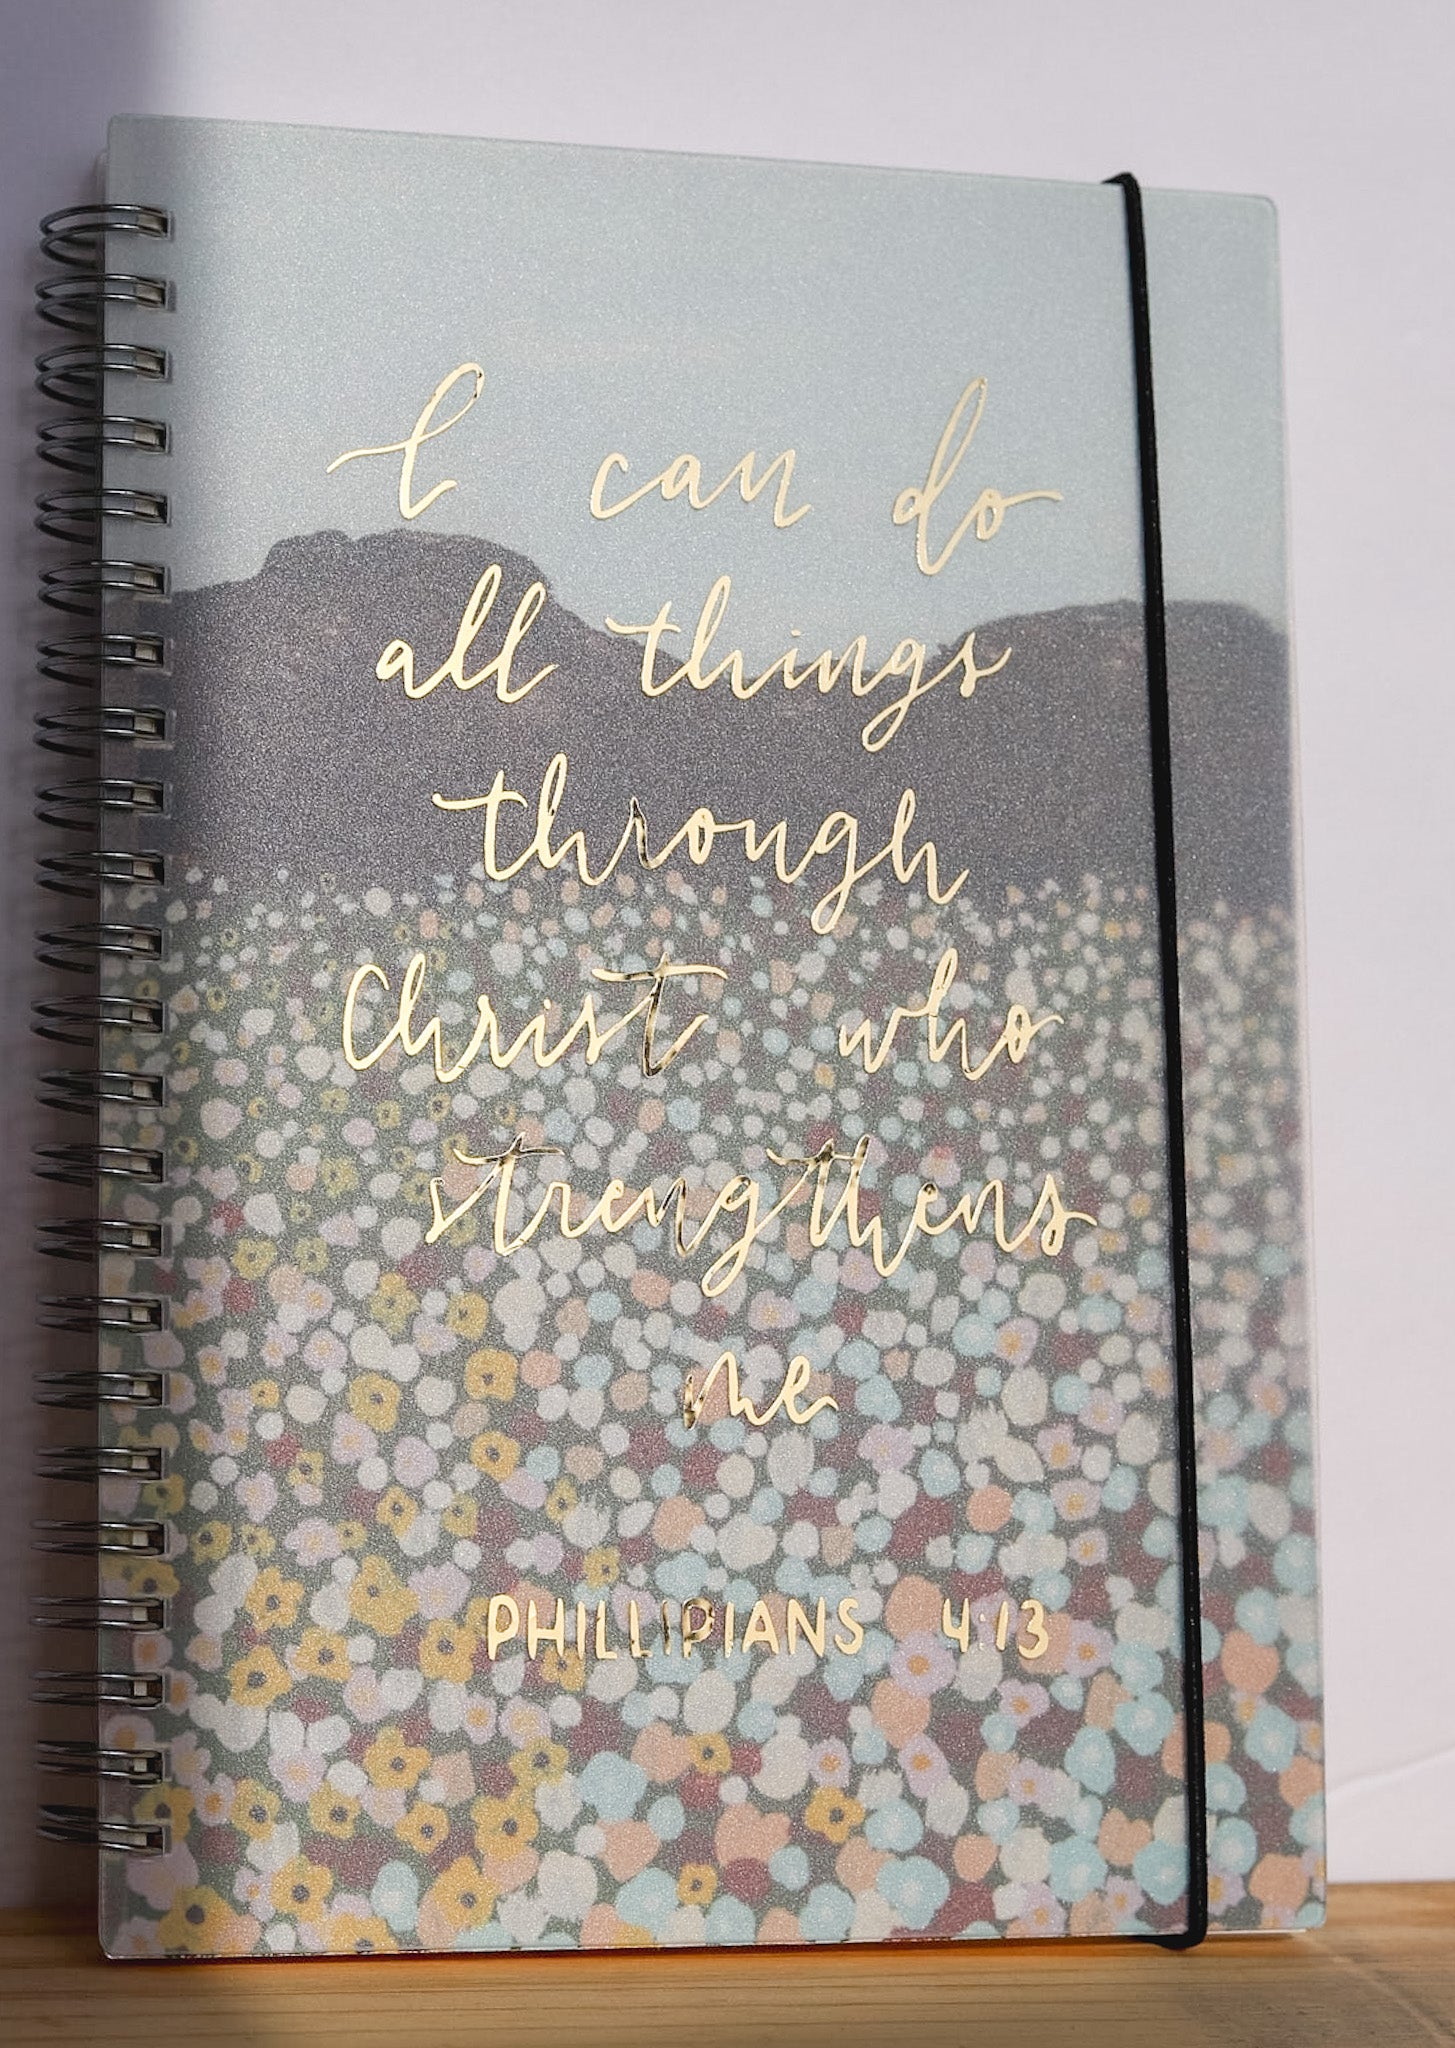 I can do
all things
through
Christ who
strengthens
me
PHILLIPIANS 4:13